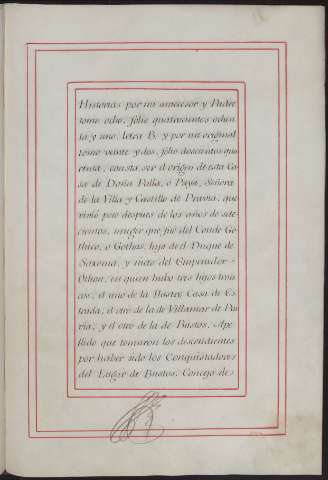 Historias por mi antecesor y Padre
tomo ocho, folio quatrocientos ochen
ta y uno, letra B. y por mi original
tomo veinte y dos, folio doscientos qua
renta, consta, ser el origen de esta Ca
sa de Doña Palla, ó Paya, Señora
de la Villa y Castillo de Pravia, que
vivió poco despues de los años de sete
cientos, muger que fue del Conde Go
thico, ó Gothas, hijo de el Duque de
Saxonia, y nieto del Emperador
Othon, en quien hubo tres hijos tron
cos; el uno de la Ilustre Casa de Es
trada, el otro de la de Villamar de Pra
via, y el otro de la de Bustos, Ape
llido que tomaron los descendientes
por haber sido los Conquistadores
del Lugar de Bustos, Concejo de